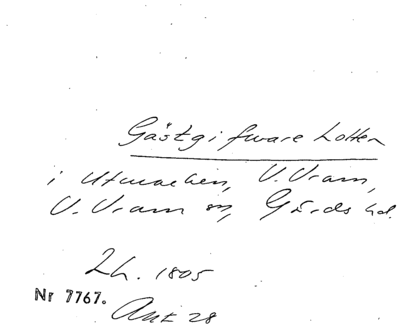 Gästgifvare Lotten
i Utmarken, V. Vram,
V. Vram sn, Gärds hd.
2 h. 1805
Nr 7767.
Ank 28